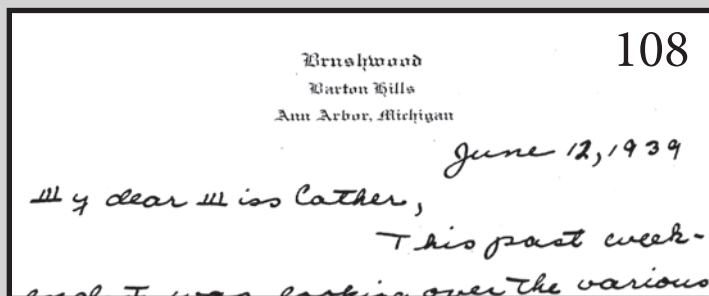 108
Brushwood
Barton Hills
Ann Arbor, Michigan
June 12, 1939
My dear Miss Cather,
This past week-
end I was looking over the various